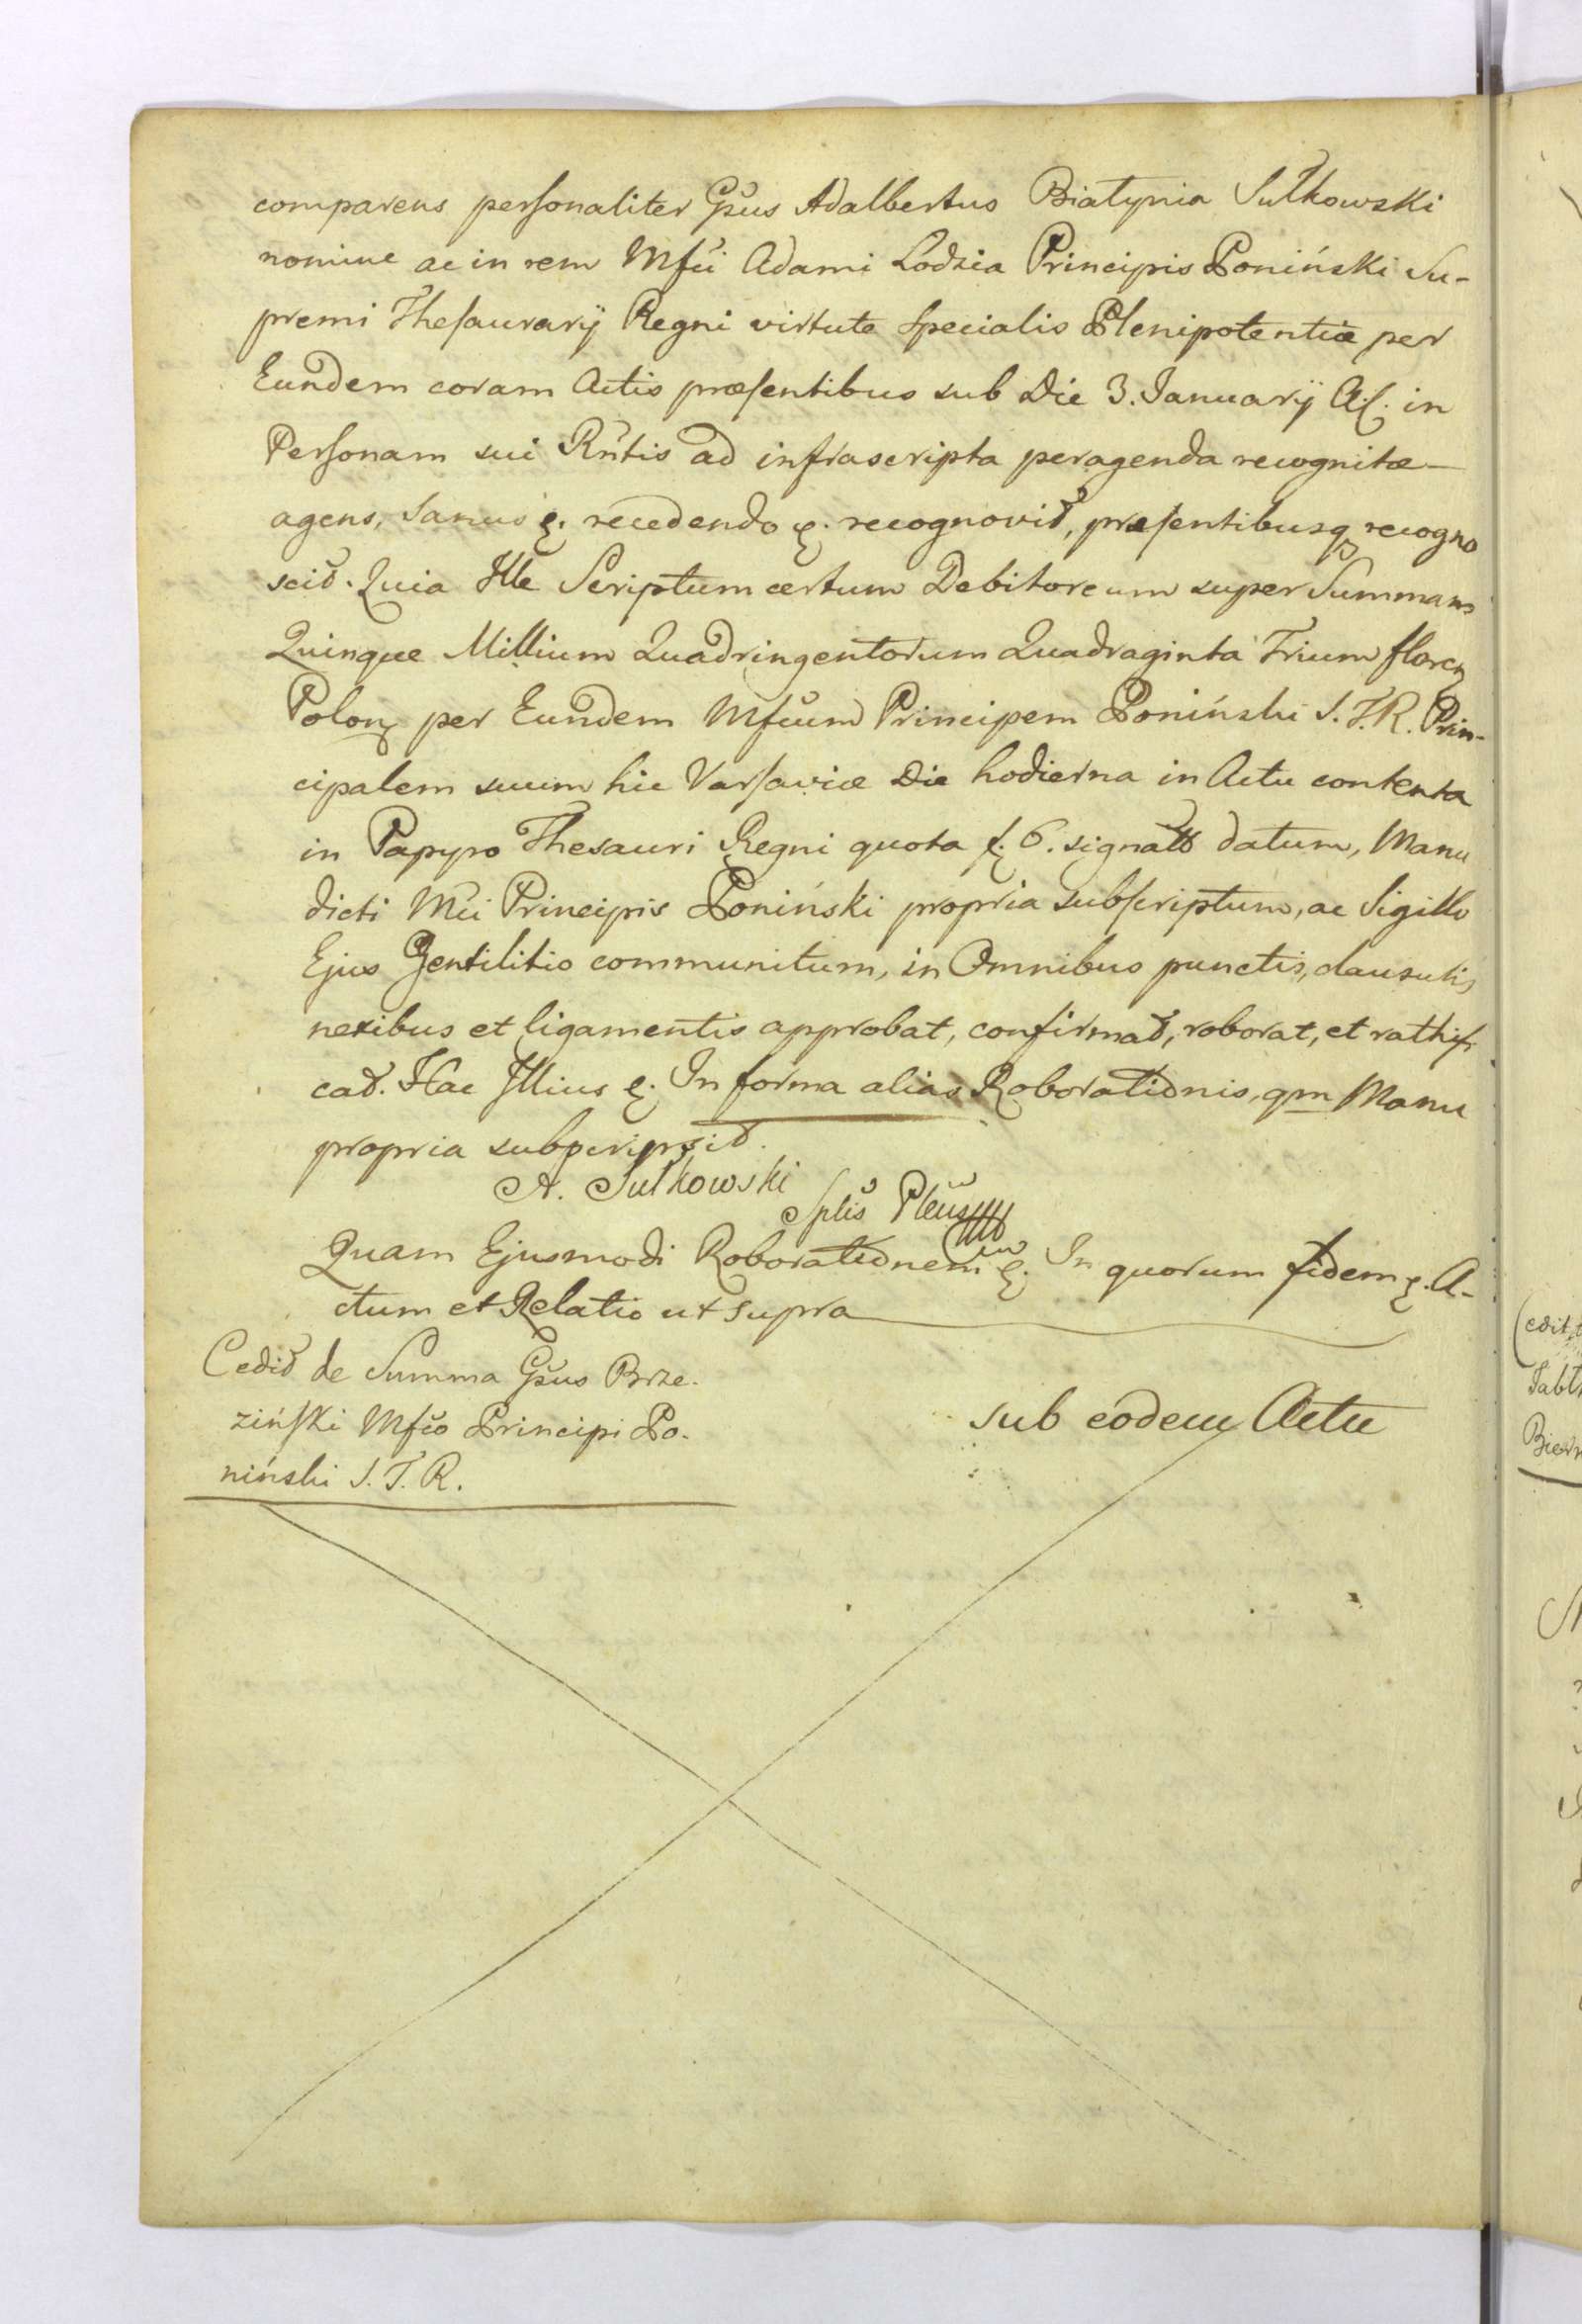 comparens personaliter Gsus Adalbertus Białynia Sułkowski
nomine ac in rem Mfci Adami Łodzia Principis Poniński Su-
premi Thesaurarij Regni virtute specialis Plenipotentiæ per
Eundem coram Actis præsentibus sub Die 3. Januarij in
Personam sui Rntis ad infrascripta peragenda recognitæ
agens, sanus recedendo recognovit, præsentibusq recogno
scit. Quia Ille Scriptum certum Debitoreum super Summam
Quinque Millium Quadringentorum Quadraginta Trium floren
Polon per Eundem Mfcum Principem Poniński S. T. R. Prin-
cipalem suum hic Varsaviæ Die hodierna in Actu contenta
in Papyro Thesauri Regni quota f. 6. signato datum, Manu
dicti Mci Principis Poniński propria subscriptum, ac Sigillo
Ejus Gentilitio communitum, in Omnibus punctis, clausulis,
nexibus et ligamentis approbat, confirmat, roborat, et rathifi
cat. Hac Illius In forma alias Roborationis, qm Manu
propria subscripsit.
A. Sułkowski
Splis Pleus
Quam Ejusmodi Roborationem In quorum fidem A-
ctum et Relatio ut supra
Cedit de Summa Gsus Brze-
ziński Mfco Principi Po-
niński S. T. R.
sub eodem Actu